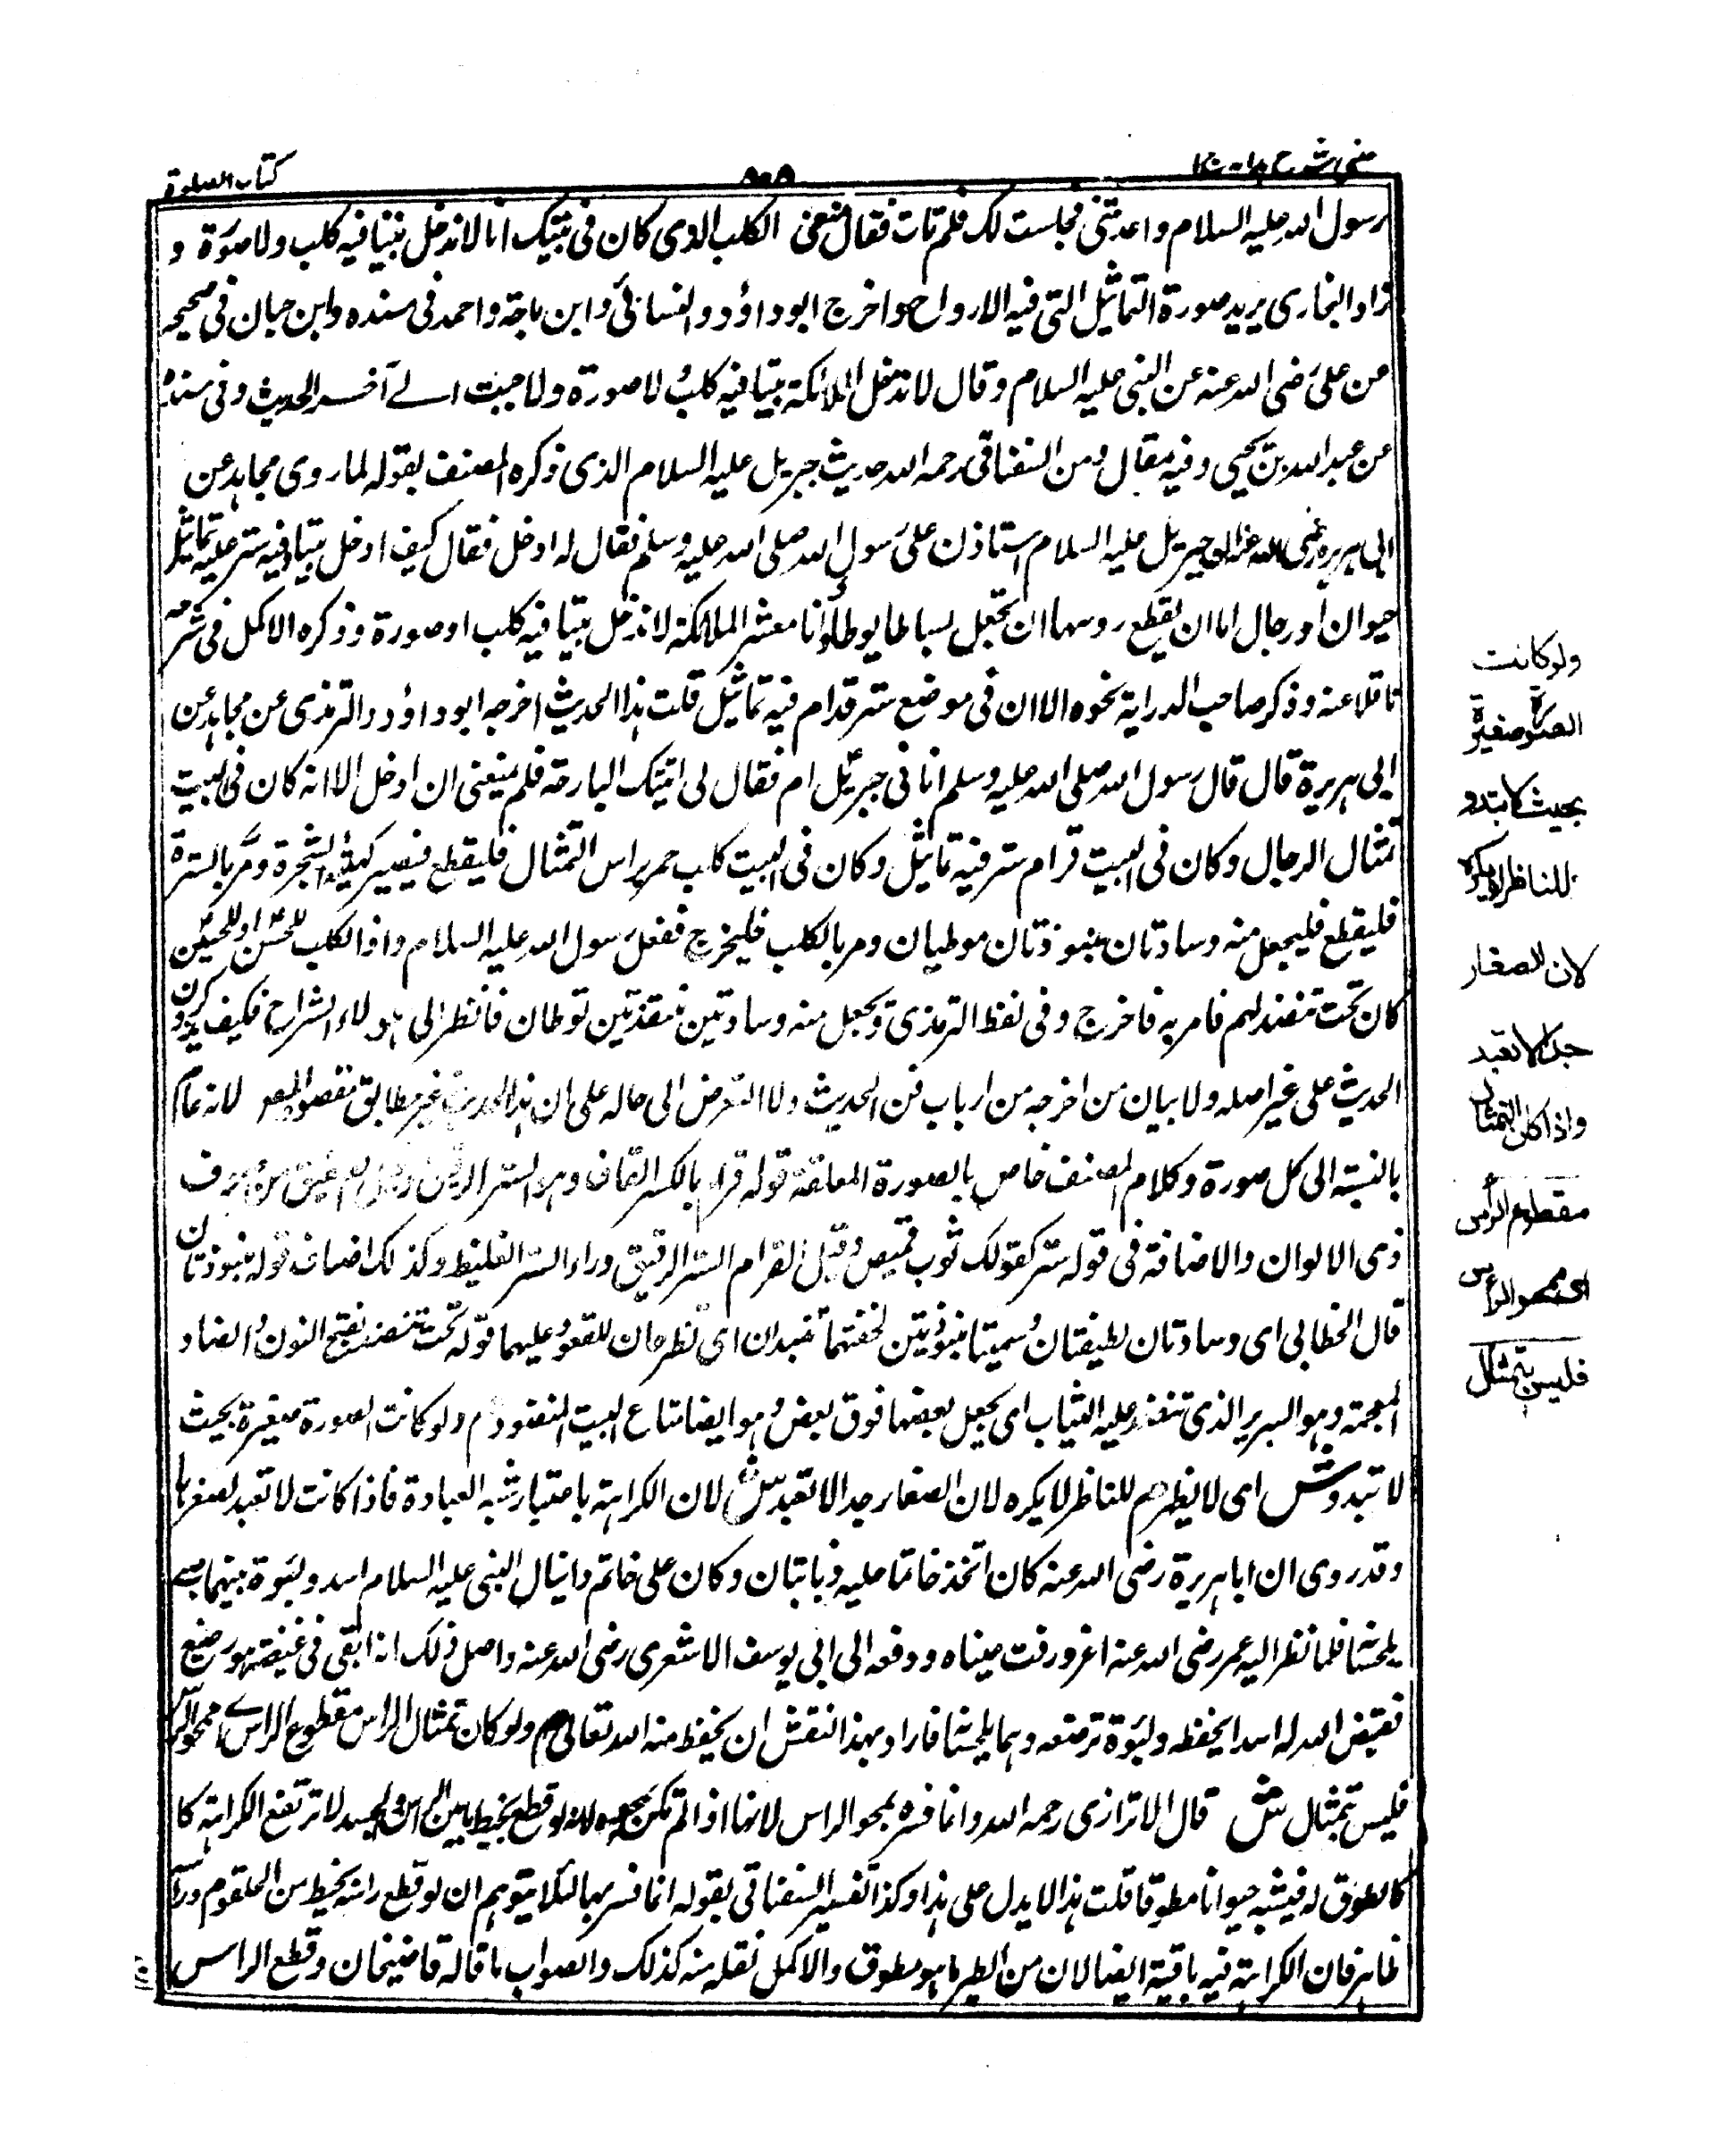 كتاب الصلوة
رسول الله عليه السلام واعدتنى فجلست لك فلم تات فقال منعنى الكلب الذى كان فى بيتك انا لا ندخل بيتا فيه كلب ولا صورة و
زاد البخارى يريد صورة التماثيل التى فيه الارواح واخرج ابو داؤد والنسائى وابن ماجة واحمد فى سنده وابن حبان فى صحيحه
عن على رضى الله عنه عن النبى عليه السلام وقال لا تدخل الملائكة بيتا فيه كلب ولا صورة ولا جنب الى آخر الحديث وفى سنده
عن عبد الله بن يحيى وفيه مقال ومن السغناقى رحمه الله حديث جبريل عليه السلام الذى ذكره المصنف بقوله لما روى مجاهد عن
ابى هريرة رضى الله عنه ان جبريل عليه السلام استاذن على رسول الله صلى الله عليه وسلم فقال له ادخل فقال كيف ادخل بيتا فيه ستر عليه تماثيل
حيوان او رجال اما ان يقطع روسها او ان تجعل بساطا يوطأ وانا معشر الملائكة لا ندخل بيتا فيه كلب او صورة وذكره الاكمل فى شرحه
ناقلا عنه وذكر صاحب الدراية نحوه الا ان فى موضع ستر قدام فيه تماثيل قلت هذا الحديث اخرجه ابو داؤد والترمذى عن مجاهد عن
ابى هريرة قال قال رسول الله صلى الله عليه وسلم انانى جبرئيل ام فقال لى اتيتك البارحة فلم يمنعنى ان ادخل الا انه كان فى البيت
تمثال الرجال وكان فى البيت قرام ستر فيه تماثيل وكان فى البيت كلب فمر براس التمثال فليقطع فيصير كهيئة الشجرة ومر بالسترة
فليقطع فليجعل منه وسادتان منبوذتان موطيان ومر بالكلب فليخرج ففعل رسول الله عليه السلام واذا الكلب للحسن او للحسين
كان تحت تنضد لهم فامر به فاخرج وفى لفظ الترمذى ويجعل منه وسادتين منتقذتين توطان فانظر الى هؤلاء الشراح فكيف يذكرون
الحديث على غير اصله ولا بيان من اخرجه من ارباب فن الحديث ولا التعرض الى حاله على ان هذا الحديث غير مطابق لمقصود المصنف لانه عام
بالنسبة الى كل صورة وكلام المصنف خاص بالصورة المعلقة قوله قرام بالكسر القاف وهو الستر الرقيق وقيل من صوف
ذى الالوان والاضافة فى قوله ستر كقولك ثوب قميص وقيل القرام الستر الرقيق وراء الستر الغليظ وكذلك اضاف قوله منبوذتان
قال الخطابى اى وسادتان لطيفتان وسميتا منبوذتين لخفتهما تنبذان اى تطرحان للقعود عليهما قوله تحت تنضد بفتح النون والضاد
المعجمة وهو السرير الذى تنضد عليه الثياب اى يجعل بعضها فوق بعض وهو ايضا متاع البيت المنضود م ولو كانت الصورة صغيرة بحيث
لا تبدو ش اى لا يظهر م للناظر لا يكره لان الصغار جدا لا تعبد ش لان الكراهة باعتبار شبه العبادة فاذا كانت لا تعبد لصغرها
وقد روى ان ابا هريرة رضى الله عنه كان اتخذ خاتما عليه ذبابتان وكان على خاتم دانيال النبى عليه السلام اسد ولبوة بينهما صبى
يلحسانه فلما نظر اليه عمر رضى الله عنه اغرورقت عيناه ودفعه الى ابى يوسف الاشعرى رضى الله عنه واصل ذلك انه ابقى فى غيضة هو رضيع
فقيض الله له اسدا يحفظه ولبوة ترضعه وهما يلحسانه فاراد بهذا النقش ان يحفظ منة الله تعالى م ولو كان تمثال الراس مقطوع الراس اى ممحو الراس
فليس بتمثال ش قال الاترازى رحمه الله وانما فسره بمحو الراس لانها اذا لم تكن ممحوه لانه لو قطع بخيط ما بين الراس والجسد لا ترتفع الكراهة كا
كالطوق له فيشبه حيوانا مطوقا قلت هذا لا يدل على هذا وكذا تفسير السغناقى بقوله انما فسر بها لئلا يتوهم ان لو قطع راسه بخيط من الحلقوم وراسه
ظاهر فان الكراهة فيه باقية ايضا لان من الطير ما هو مطوق والاكمل نقله منه كذلك والصواب ما قاله قاضيخان وقطع الراس
ولو كانت
الصورة صغيرة
بحيث لا تبدو
للناظر لا يكره
لان الصغار
جدا لا تعبد
واذا كان التمثال
مقطوع الرأس
اى ممحو الراس
فليس بتمثال